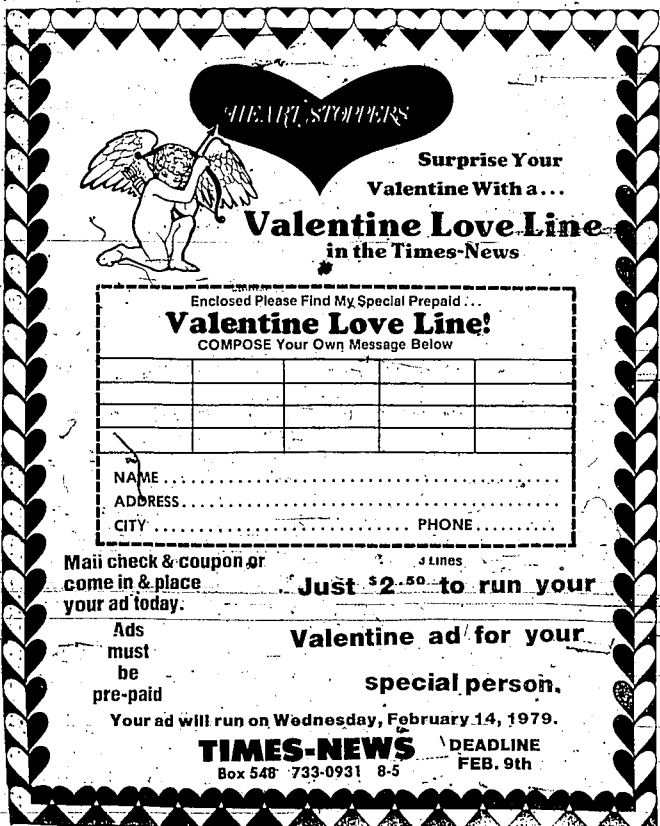 HEART STOPPERS
Surprise Your
Valentine With a...
Valentine Love Line
in the Times-News
Enclosed Please Find My Special Prepaid...
Valentine Love Line!
COMPOSE Your Own Message Below
NAME
ADDRESS
CITY PHONE
Mail check & coupon or
come in & place
your ad today.
Ads
must
be
pre-paid
3 Lines
Just $2.50 to run your
Valentine ad for your
special person.
Your ad will run on Wednesday, February 14, 1979.
TIMES-NEWS
Box 548 733-0931 8-5
DEADLINE
FEB. 9th